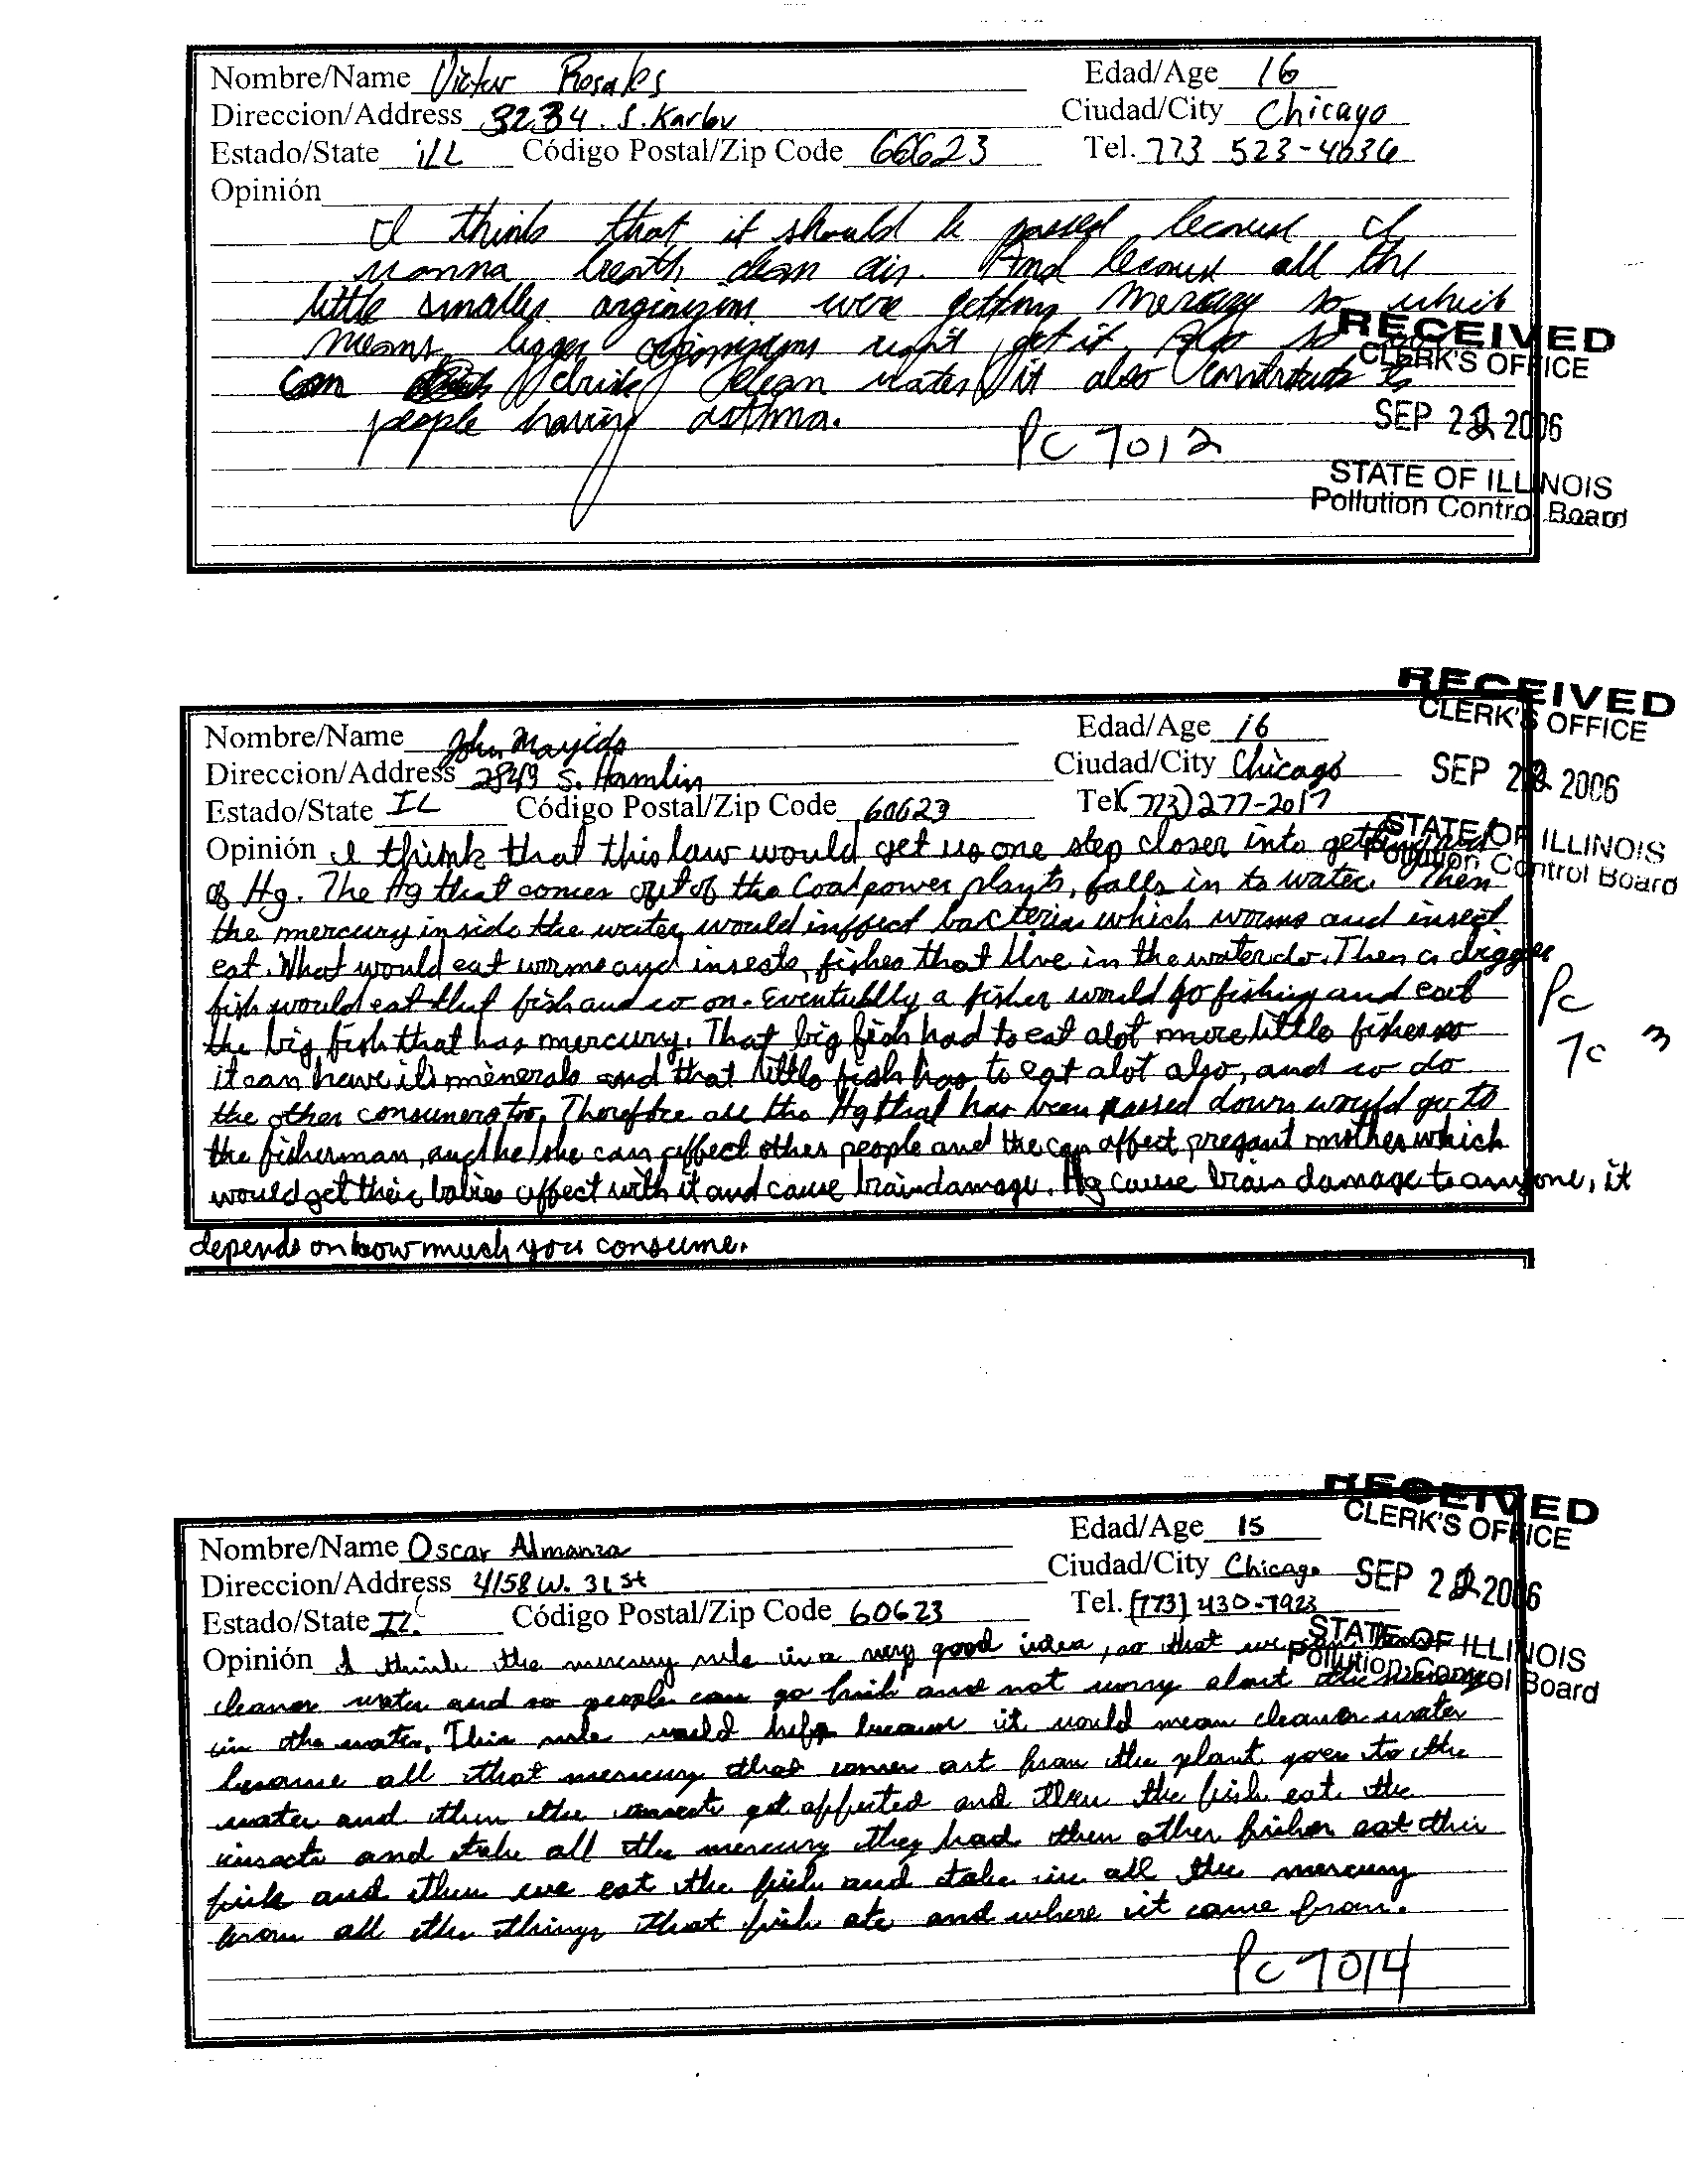 Nombre/Name Victor Rosales Edad/Age 16
Direccion/Address 3234. S. Karlov Ciudad/City Chicago
Estado/State ill Código Postal/Zip Code 60623 Tel. 773 523-4636
Opinión
I think that it should be passed because I
wanna breath clean air. And because all the
little smaller were getting mercury so which
means bigger might get it. Also so
can drink clean water it also contribute to
people having asthma.
PC 7012
RECEIVED
CLERK'S OFFICE
SEP 2 2006
STATE OF ILLINOIS
Pollution Control Board
RECEIVED
CLERK'S OFFICE
SEP 2 2006
STATE OF ILLINOIS
Pollution Control Board
Nombre/Name John Edad/Age 16
Direccion/Address 2849 S. Hamlin Ciudad/City Chicago
Estado/State IL Código Postal/Zip Code 60623 Tel. (773) 277-2017
Opinión I think that this law would get us one step closer into getting
of Hg. The Hg that comes out of the Coal power plants, falls in to water. Then
the mercury inside the water would inffect bacteria which worms and insect
eat. What would eat worms and insects, fishes that live in the water do. Then a digger
fish would eat that fish and so on. Eventually a fisher would go fishing and eat
the big fish that has mercury. That big fish had to eat alot more little fishes so
it can have its minerals and that little fish has to eat alot also, and so do
the other consumers too. Therefore all the Hg that has been passed down would go to
the fisherman, and he/she can affect other people and the can affect pregant mother which
would get their babies affect with it and cause brain damage. Hg cause brain damage to anyone, it
depends on how much you consume.
Pc
7c 3
RECEIVED
CLERK'S OFFICE
SEP 2 2006
STATE OF ILLINOIS
Pollution Control Board
Nombre/Name Oscar Almanza Edad/Age 15
Direccion/Address 4158 W. 31 st Ciudad/City Chicago
Estado/State IL. Código Postal/Zip Code 60623 Tel. (773) 430-7923
Opinión I think the mercury rule is a very good idea, so that we can have
cleaner water and so people can go fish and not worry about the mercury
in the water. This rule would help because it would mean cleaner water
because all that mercury that comes out from the plant goes to the
water and then the insects get affected and then the fish eat the
insects and take all the mercury they had then other fishes eat this
fish and then we eat the fish and take in all the mercury
from all the things that fish ate and where it came from.
Pc 7014